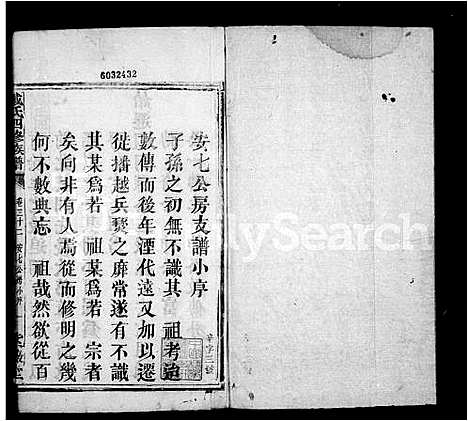 6032432
安七公房支譜小序
子孫之初無不識其　祖考迨
數傳而後年湮代遠又加以遷
徙播越兵燹之靡常遂有不識
其某為若　祖某為若　宗者
矣向非有人焉從而修明之幾
何不數典忘　祖哉然欲從百
氏四修族譜
卷三十二
FamilySearch